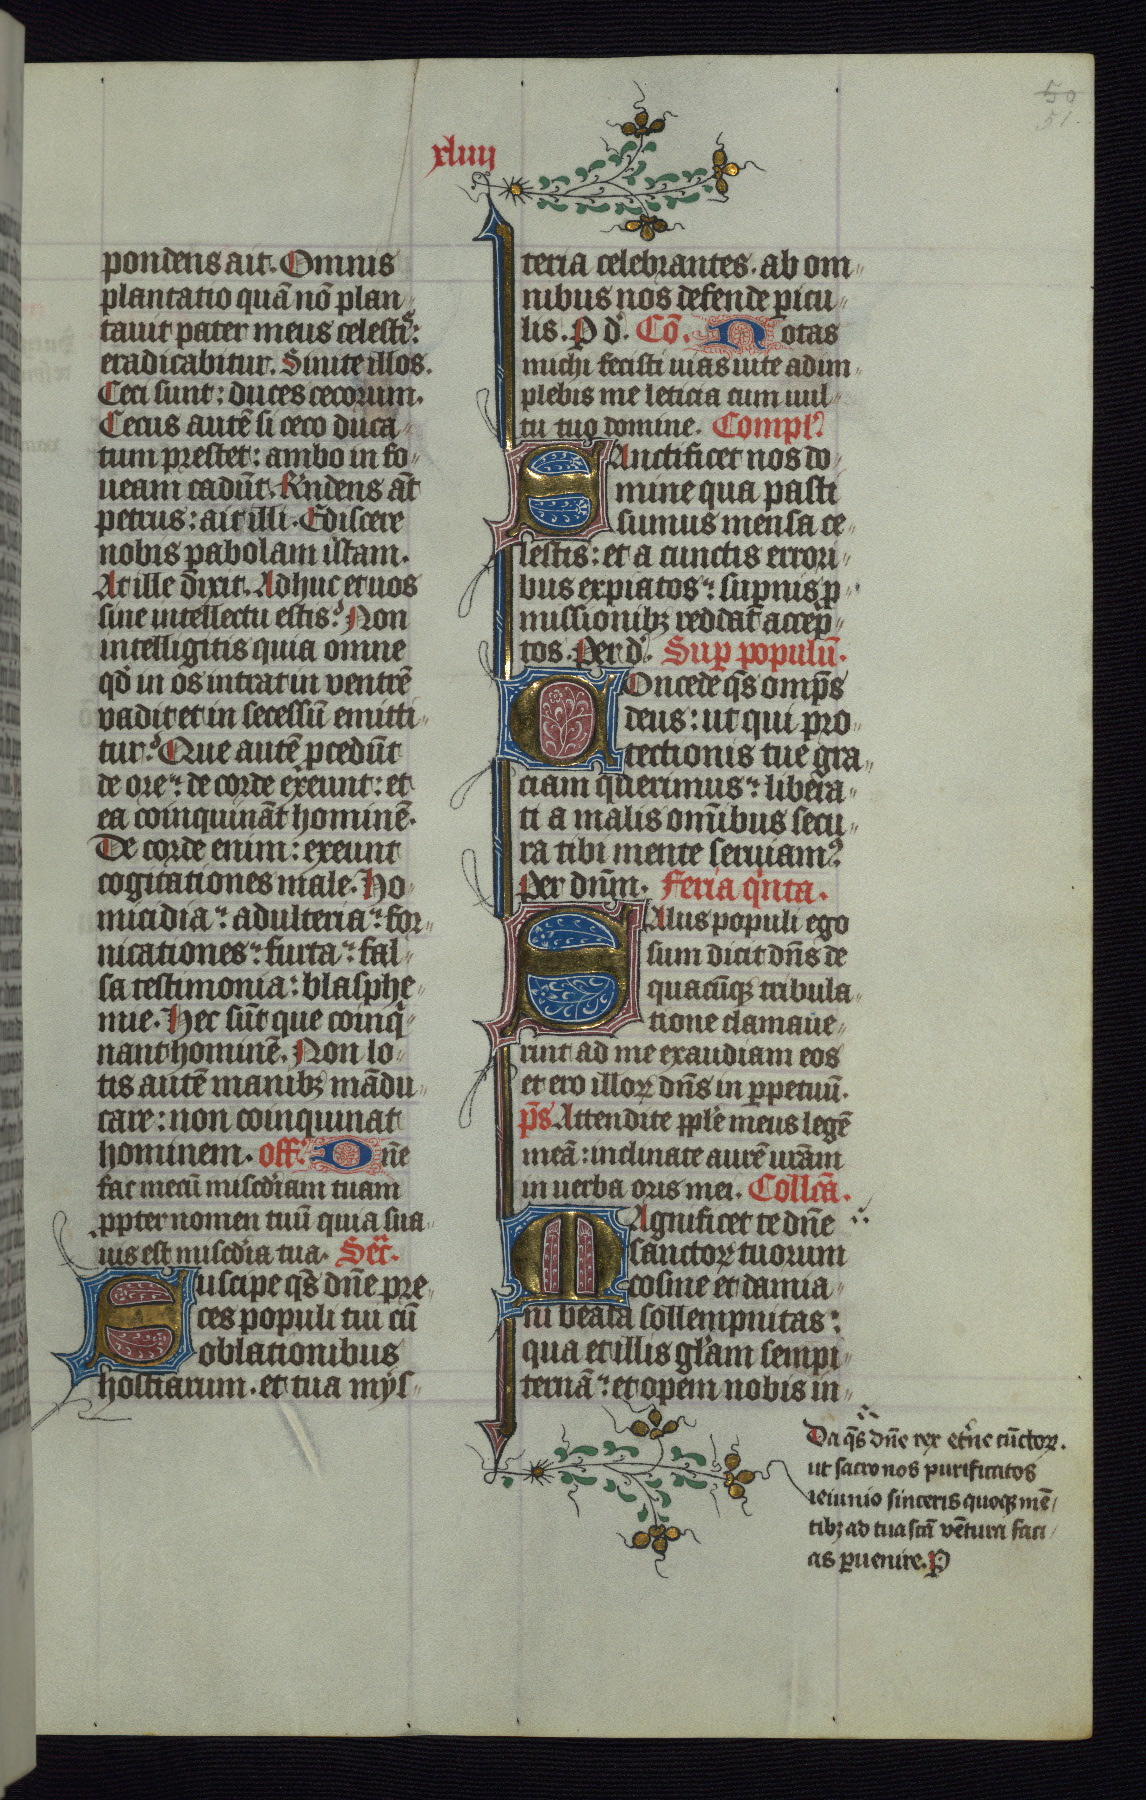 50
51.
xliiij
pondens ait. Omnis
plantatio quā nō plan-
tauit pater meus celestis:
eradicabitur. Sinite illos.
Ceci sunt: duces cecorum.
Cecus autē si ceco duca-
tum prestet: ambo in fo-
ueam cadūt. Rn̄dens aūt
petrus: ait illi. Edissere
nobis pabolam istam.
At ille dixit. Adhuc et uos
sine intellectu estis? Non
intelligitis quia omne
qd̄ in os intrat in ventrē
vadit et in secessū emitti-
tur? Que autē pcedūt
de ore: de corde exeunt: et
ea coinquināt hominē.
De corde enim: exeunt
cogitationes male. Ho-
micidia: adulteria: for-
nicationes: furta: fal-
sa testimonia: blasphe-
mie. Hec sūt que coinqi-
nant hominē. Non lo-
tis autē manibꝫ mādu-
care: non coinquinat
hominem. off. Dn̄e
fac mecū miscd̄iam tuam
ꝓpter nomen tuū quia sua-
uis est miscd̄ia tua. Sec̄.
Suscipe qs̄ dn̄e pre-
ces populi tui cū
oblationibus
hostiarum. et tua mys-
teria celebrantes. ab om-
nibus nos defende picu-
lis. P d. Cō. Notas
michi fecisti uias uite adim-
plebis me leticia cum uul-
tu tuo domine. Compl.
Sanctificet nos do-
mine qua pasti
sumus mensa ce-
lestis: et a cunctis errori-
bus expiatos: supnis p-
missionibꝫ reddat accep-
tos. Per d. Sup populū.
Concede qs̄ omps̄
deus: ut qui pro-
tectionis tue gra-
ciam querimus: libera-
ti a malis omībus secu-
ra tibi mente seruiamꝰ.
Per dn̄m. Feria qinta.
Salus populi ego
sum dicit dn̄s de
quacūqꝫ tribula-
tione clamaue-
rint ad me exaudiam eos
et ero illoꝝ dn̄s in ꝑpetuū.
ps̄ Attendite pple meus legē
meā: inclinate aurē uram
in uerba oris mei. Collca.
Magnificet te dn̄e
sanctoꝝ tuorum
cosme et damia-
ni beata sollempnitas:
qua et illis glam sempi-
ternā: et opem nobis in-
Da qs̄ dn̄e rex etne cūctoꝝ.
ut sacro nos purificatos
ieiunio sinceris quoqꝫ mē-
tibꝫ ad tua scā vētura faci-
as ꝑuenire. P